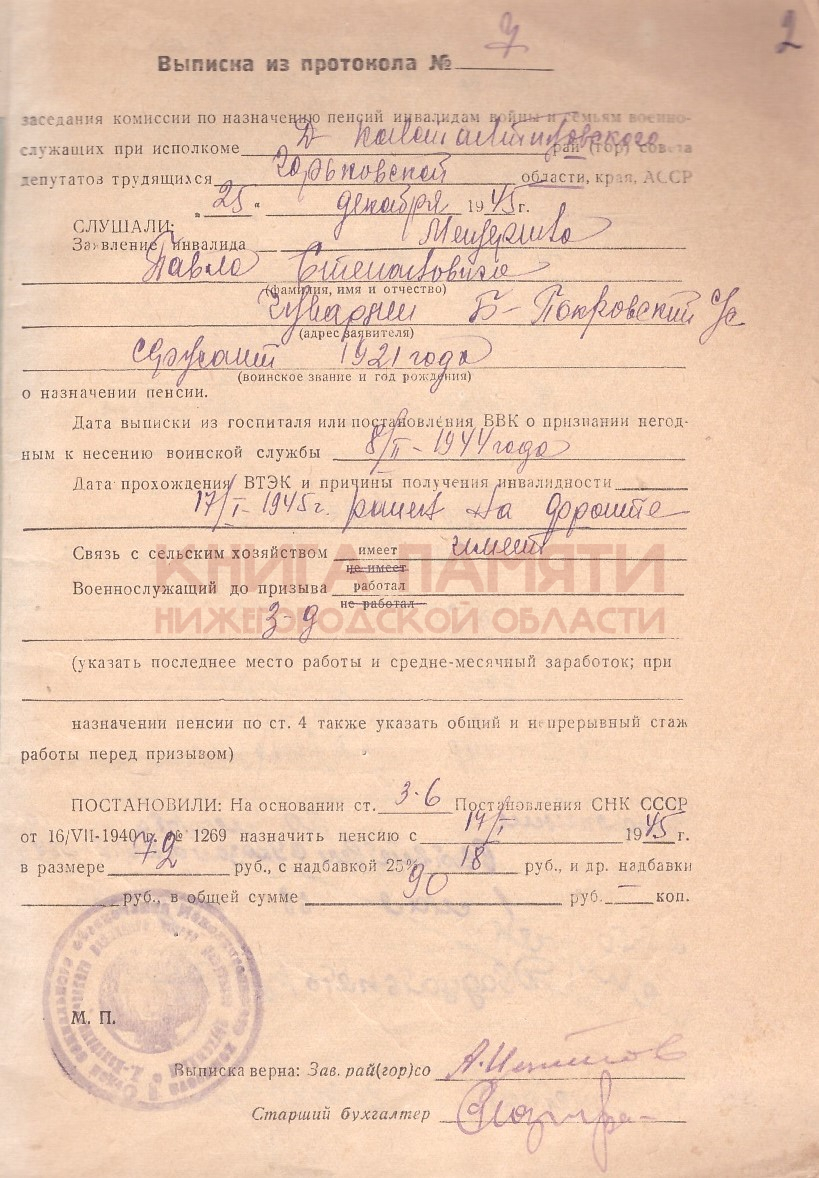 2
Выписка из протокола № 7
заседания комиссии по назначению пенсий инвалидам войны и семьям военно-
служащих при исполкоме Д-Константиновского рай (гор) совета
депутатов трудящихся Горьковской области, края, АССР
„25“ декабря 1945 г.
СЛУШАЛИ:
Заявление инвалида
Павла Степановича
(фамилия, имя и отчество)
Б-Покровский с/с
(адрес заявителя)
сержант 1921 года
(воинское звание и год рождения)
о назначении пенсии.
Дата выписки из госпиталя или постановления ВВК о признании негод-
ным к несению воинской службы 8/II-1944 года
Дата прохождения ВТЭК и причины получения инвалидности
17/I-1945г. ранен на фронте
Связь с сельским хозяйством имеет имеет
не имеет
Военнослужащий до призыва работал
не работал
КНИГА ПАМЯТИ
НИЖЕГОРОДСКОЙ ОБЛАСТИ
(указать последнее место работы и средне-месячный заработок; при
назначении пенсии по ст. 4 также указать общий и непрерывный стаж
работы перед призывом)
ПОСТАНОВИЛИ: На основании ст. 3-б Постановления СНК СССР
от 16/VII-1940 г. № 1269 назначить пенсию с 17/I 1945 г.
в размере 72 руб., с надбавкой 25% 18 руб., и др. надбавки
руб., в общей сумме 90 руб. — коп.
М. П.
Выписка верна: Зав. рай(гор)со
Старший бухгалтер